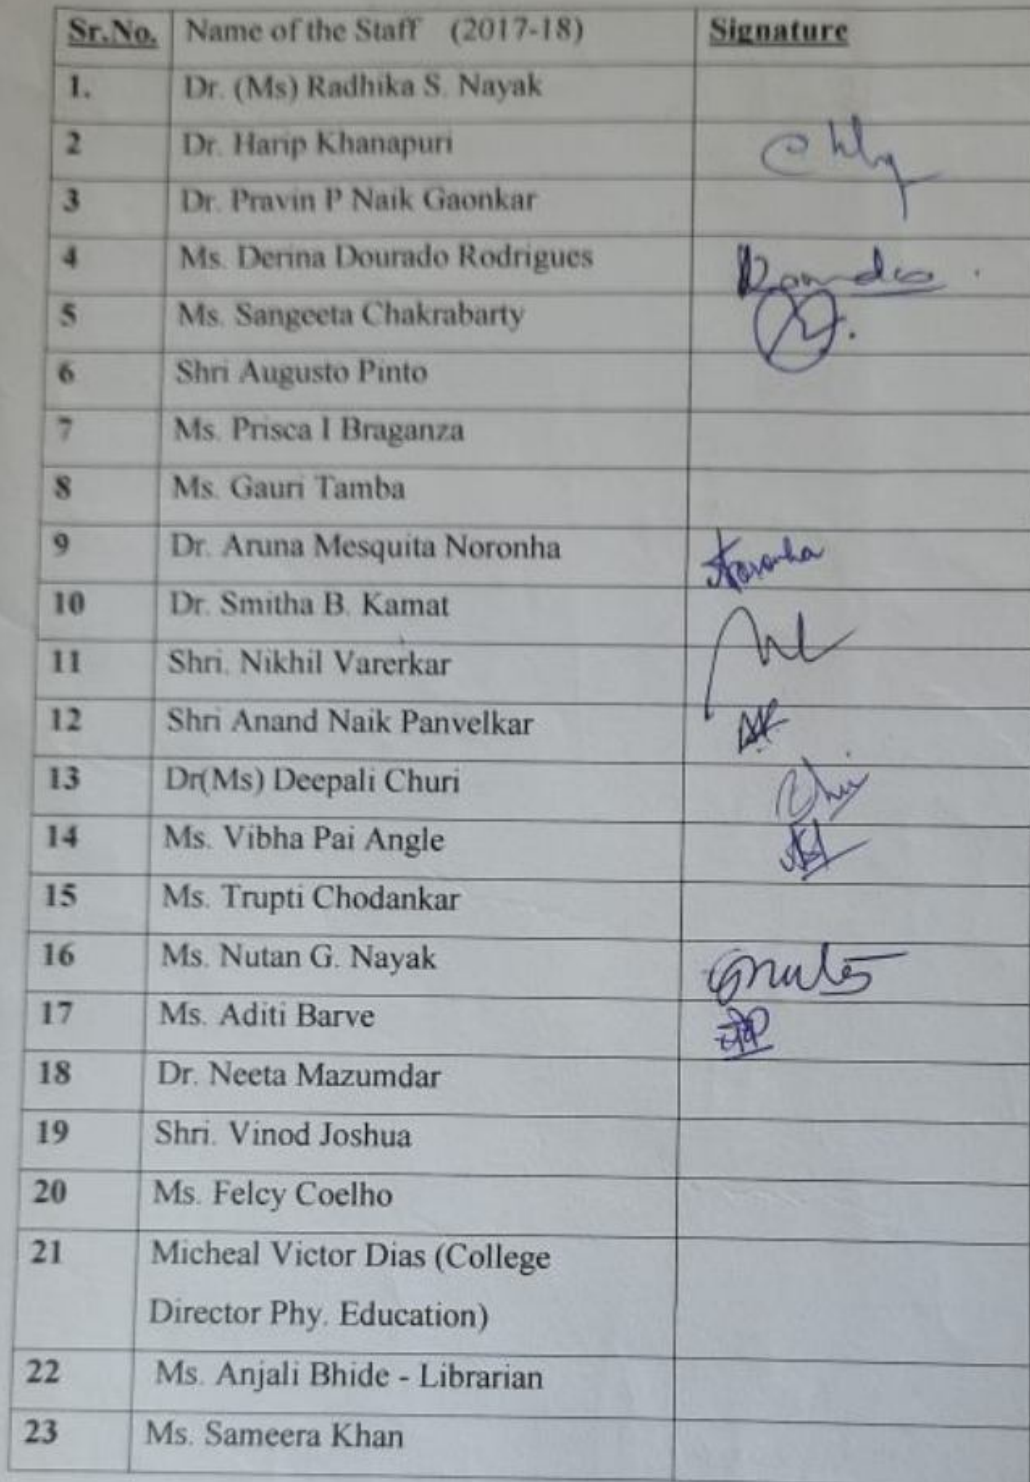 Sr.No. Name of the Staff (2017-18) Signature
1. Dr. (Ms) Radhika S. Nayak
2 Dr. Harip Khanapuri
3 Dr. Pravin P Naik Gaonkar
4 Ms. Derina Dourado Rodrigues
5 Ms. Sangeeta Chakrabarty
6 Shri Augusto Pinto
7 Ms. Prisca I Braganza
8 Ms. Gauri Tamba
9 Dr. Aruna Mesquita Noronha Noronha
10 Dr. Smitha B. Kamat
11 Shri. Nikhil Varerkar
12 Shri Anand Naik Panvelkar
13 Dr(Ms) Deepali Churi
14 Ms. Vibha Pai Angle
15 Ms. Trupti Chodankar
16 Ms. Nutan G. Nayak
17 Ms. Aditi Barve
18 Dr. Neeta Mazumdar
19 Shri. Vinod Joshua
20 Ms. Felcy Coelho
21 Micheal Victor Dias (College
Director Phy. Education)
22 Ms. Anjali Bhide - Librarian
23 Ms. Sameera Khan